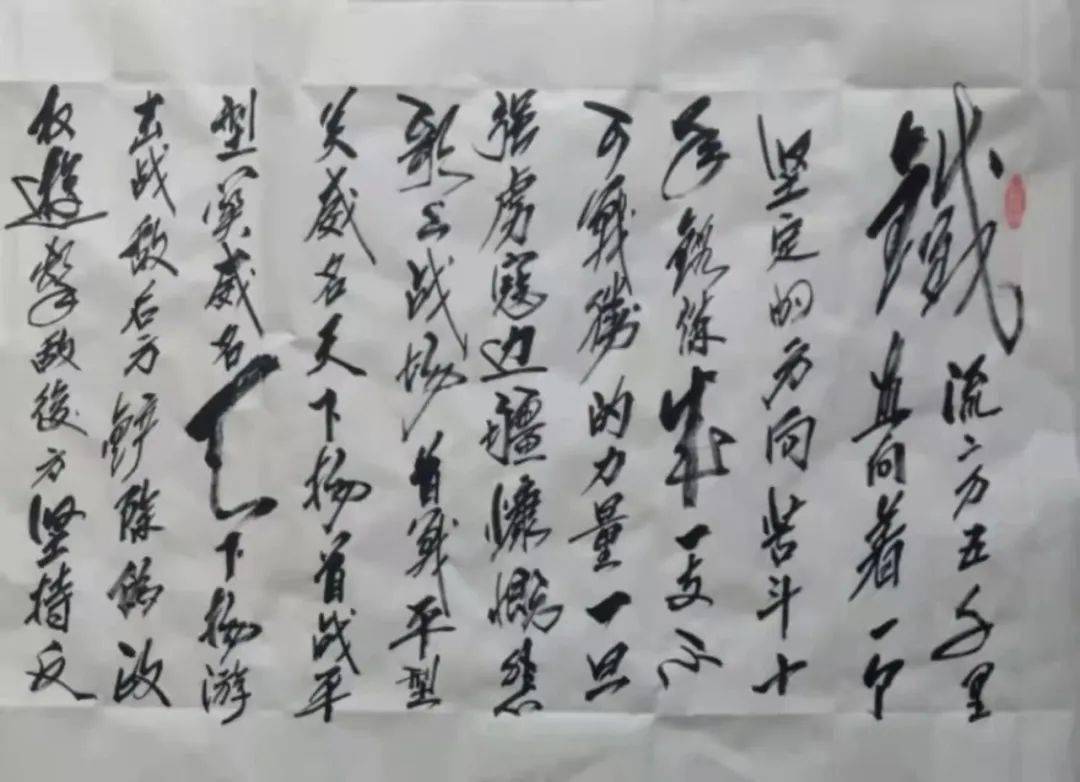 鐵流二万五千里
直向着一个
坚定的方向苦斗十
年鍛煉成一支不
可戰勝的力量一旦
强虏寇边疆慷慨悲
歌上战场首戰平型
关威名天下扬首战平
型关威名天下扬游
击战敌后方铲除偽政
权遊擊敌後方坚持反